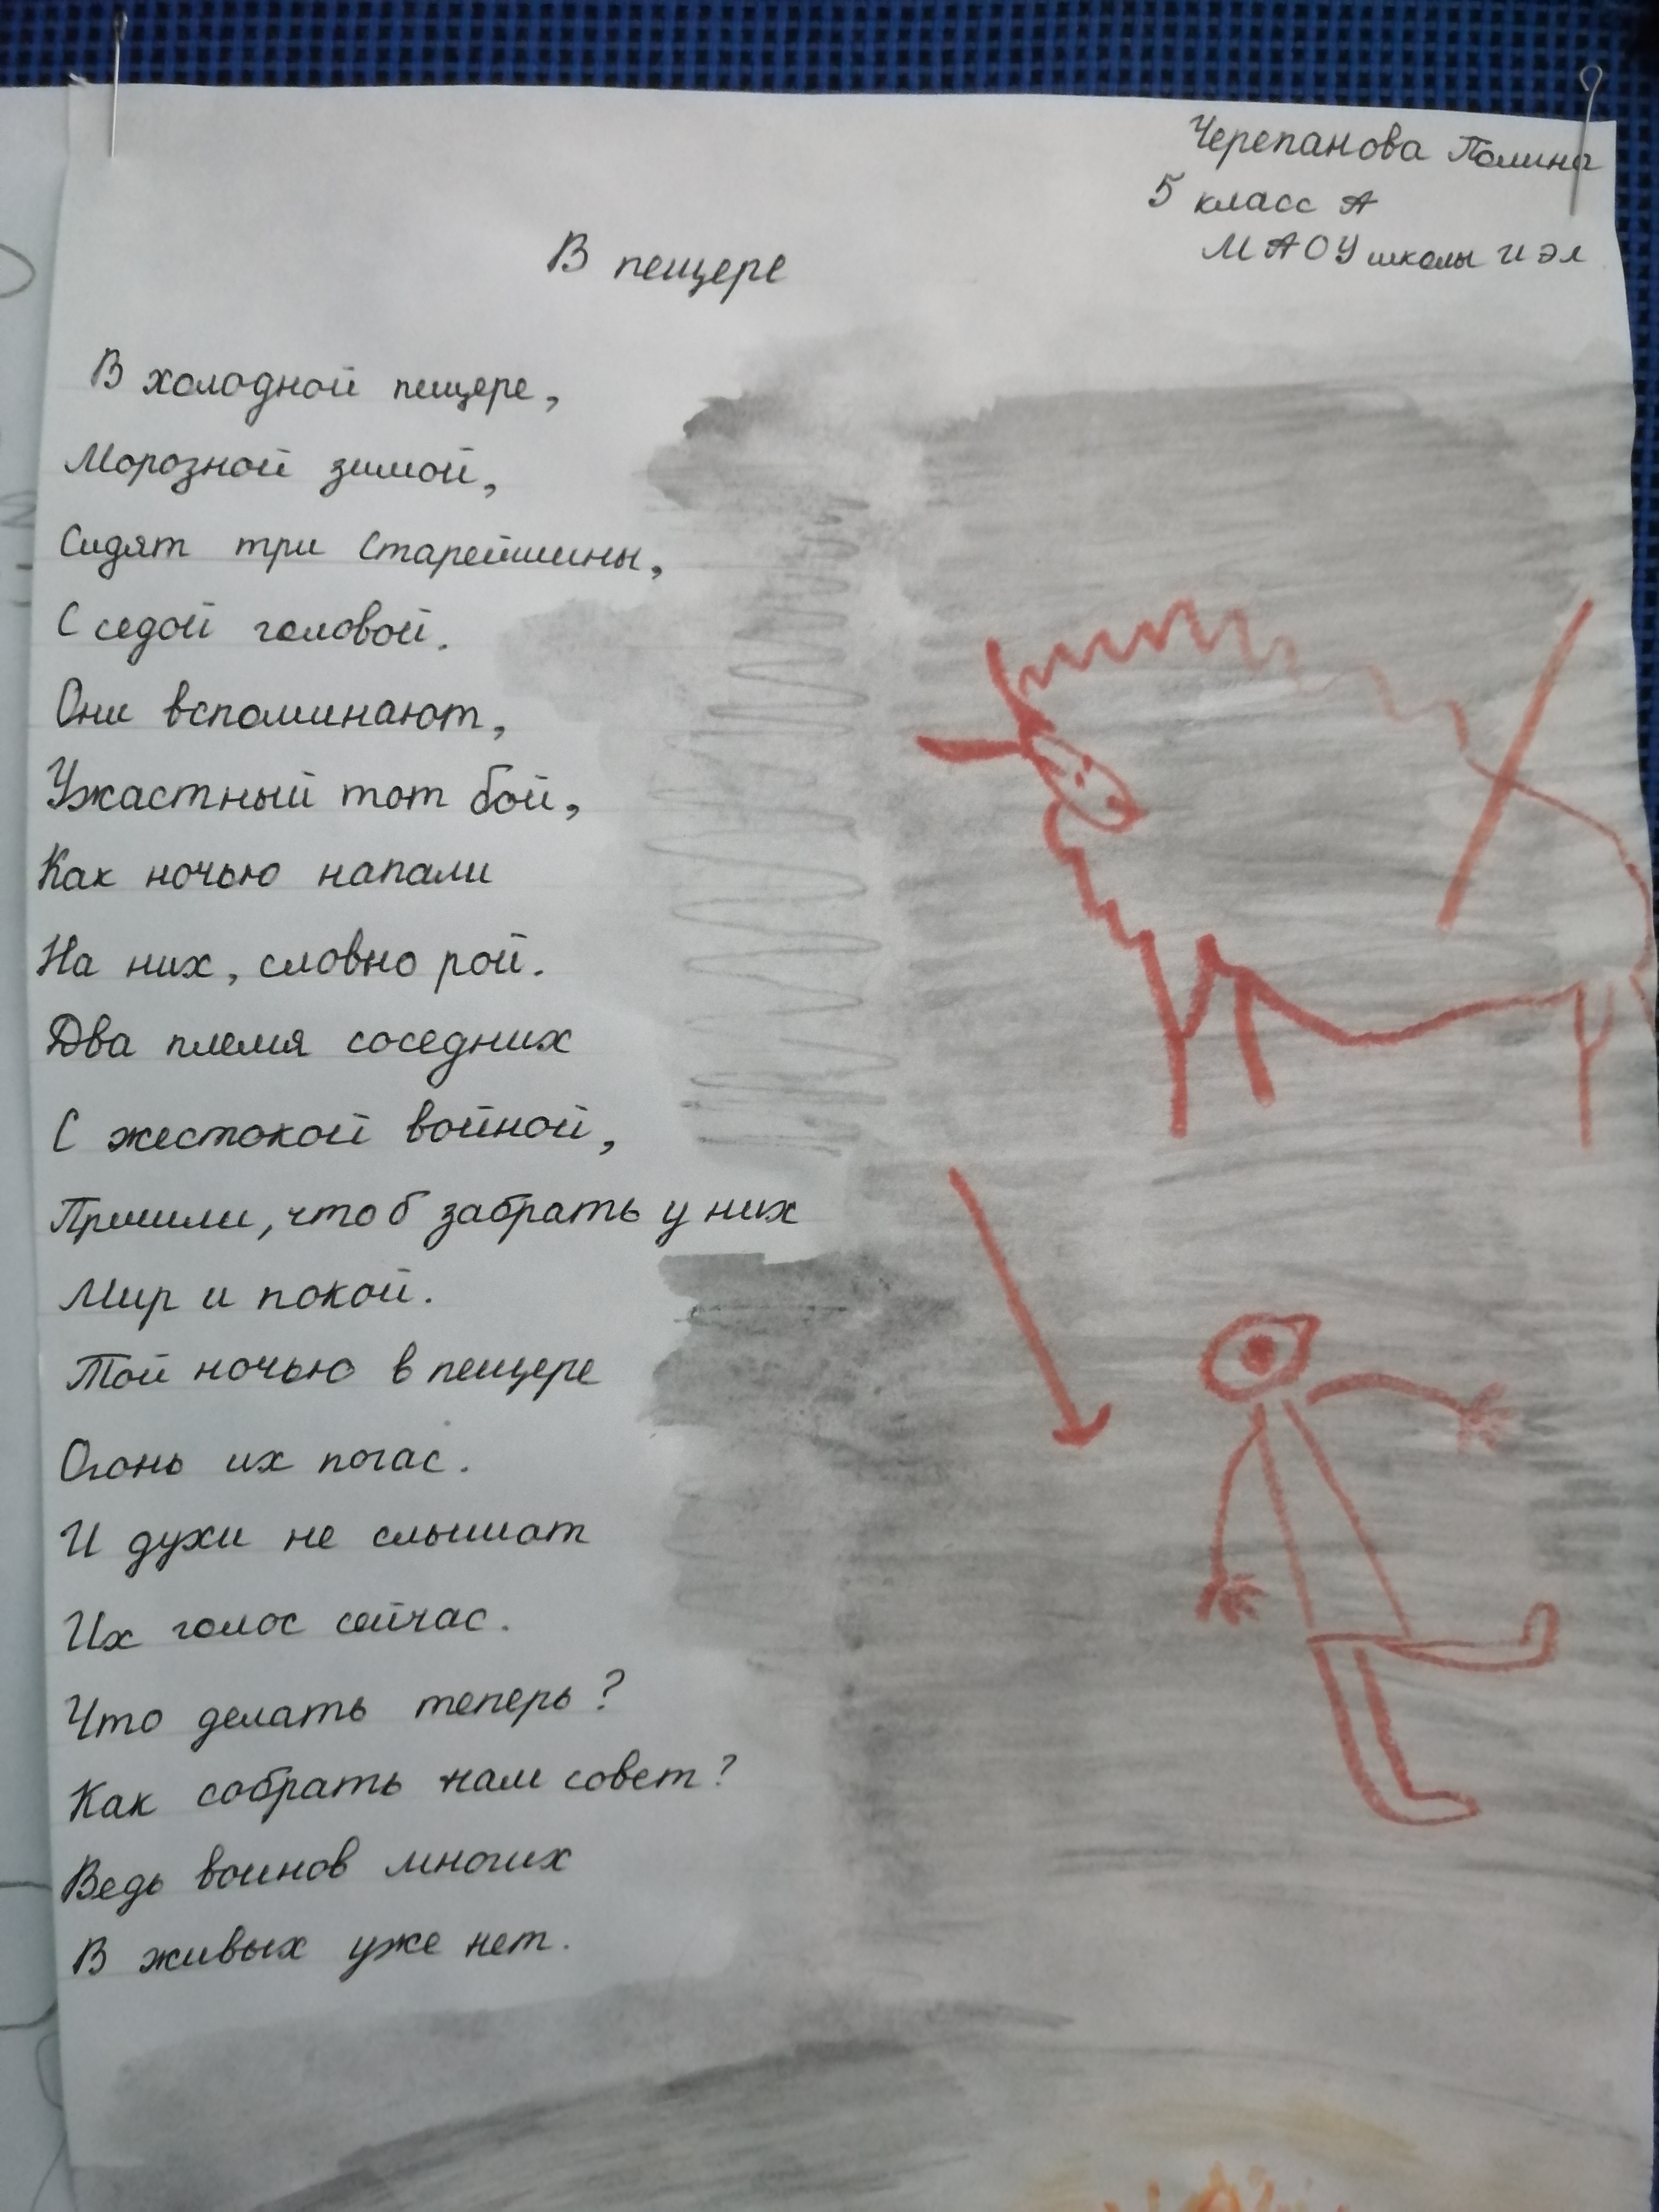 Черепанова Полина
5 класс А
МАОУ школы ИЭЛ
В пещере
В холодной пещере,
Морозной зимой,
Сидят три Старейшины,
С седой головой.
Они вспоминают,
Ужастный тот бой,
Как ночью напали
На них, словно рой.
Два племя соседних
С жестокой войной,
Пришли, чтоб забрать у них
Мир и покой.
Той ночью в пещере
Огонь их погас.
И духи не слышат
Их голос сейчас.
Что делать теперь?
Как собрать нам совет?
Ведь воинов многих
В живых уже нет.